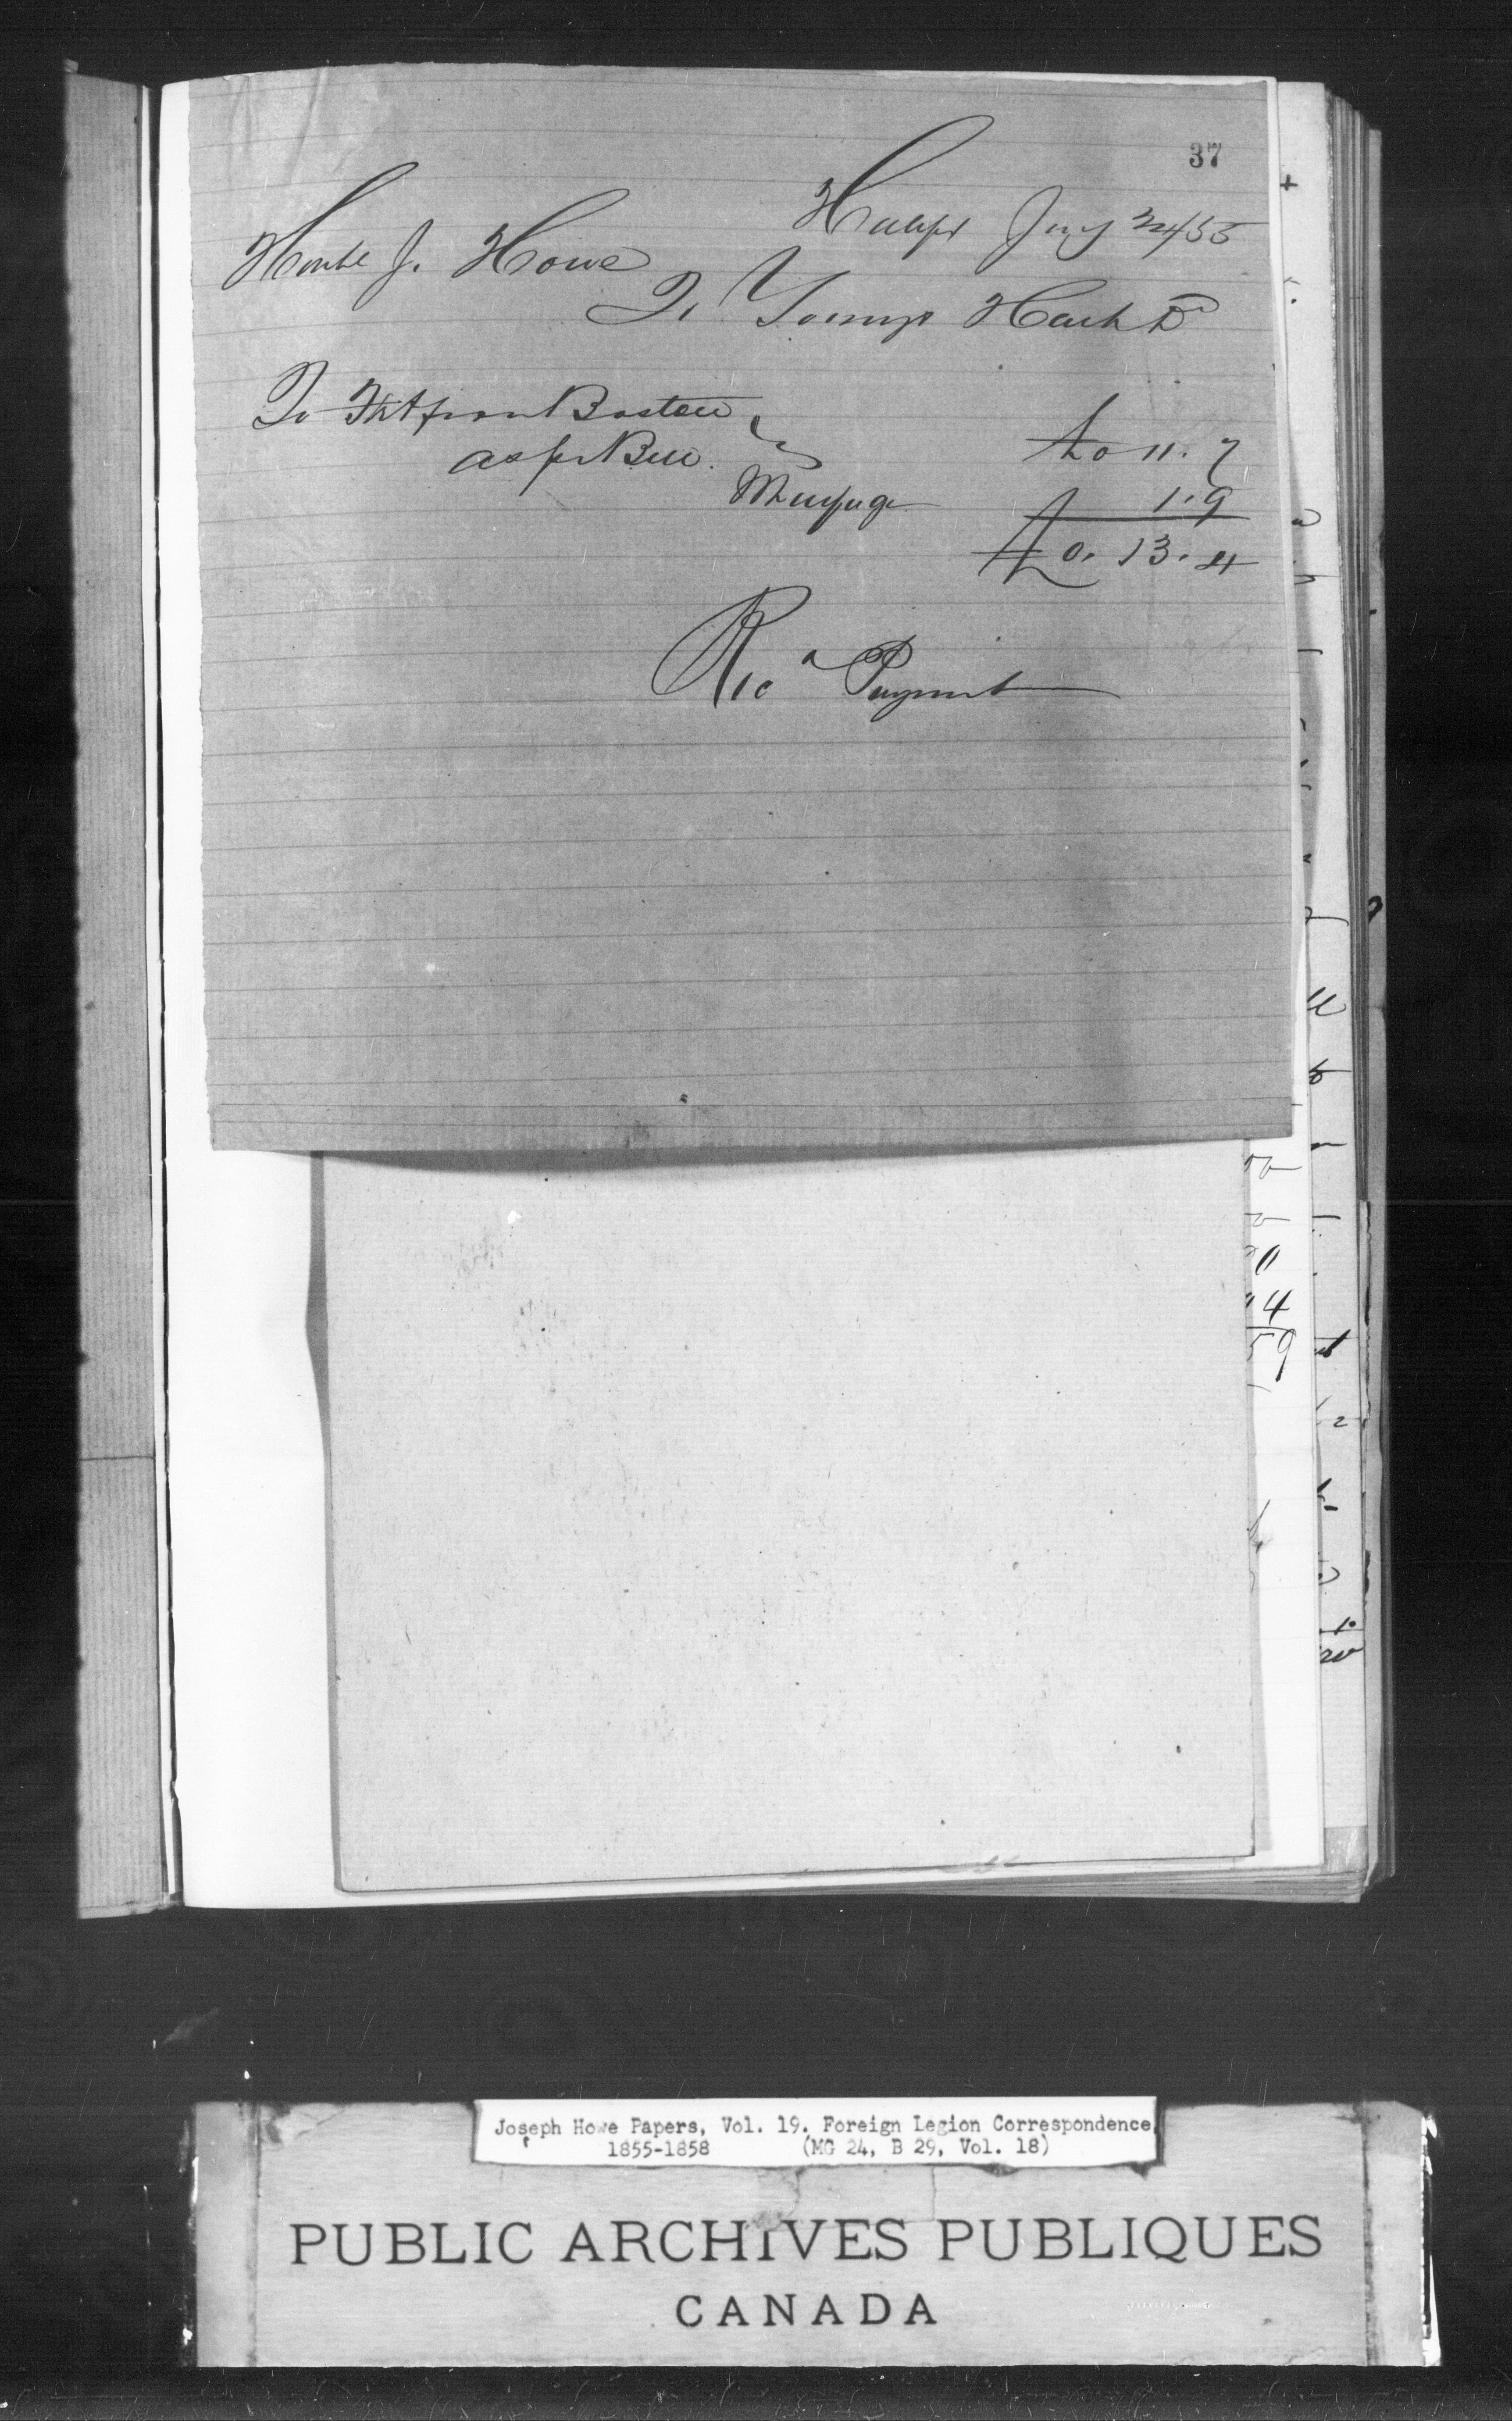 37
Halifax Jany 24/55
Honble J. Howe
To Youngs Hart Dr
To Frt from Boston
as per Bill
£0 11. 7
Wharfage 1. 9
£0. 13. 4
Recd Payment
Joseph Howe Papers, Vol. 19. Foreign Legion Correspondence,
1855-1858 (MG 24, B 29, Vol. 18)
PUBLIC ARCHIVES PUBLIQUES
CANADA